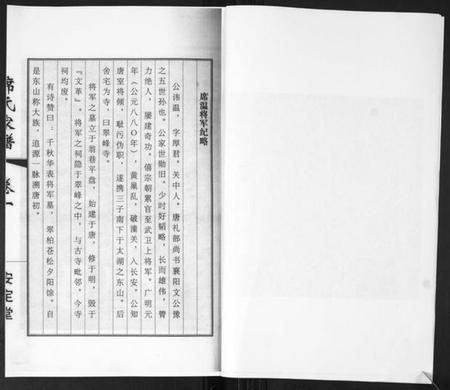 席温将军纪略
公讳温，字厚君。关中人。唐礼部尚书襄阳文公豫
之五世孙也。公家世勋旧。少时好韬略，长而雄伟，膂
力绝人，屡建奇功。僖宗朝累官至武卫上将军。广明元
年（公元八八〇年），黄巢乱，破潼关，入长安。公知
唐室将倾，耻污伪职，遂携三子南下于太湖之东山。后
舍宅为寺，曰翠峰寺。
将军之墓立于翁巷平盘，始建于唐，修于明，毁于
『文革』。将军之祠隐于翠峰之中，与古寺毗邻。今寺
祠均废。
有诗赞曰：千秋华表将军墓，翠柏苍松夕阳馀。自
是东山称大族，追源一脉溯唐初。
席氏家谱
卷一
安定堂